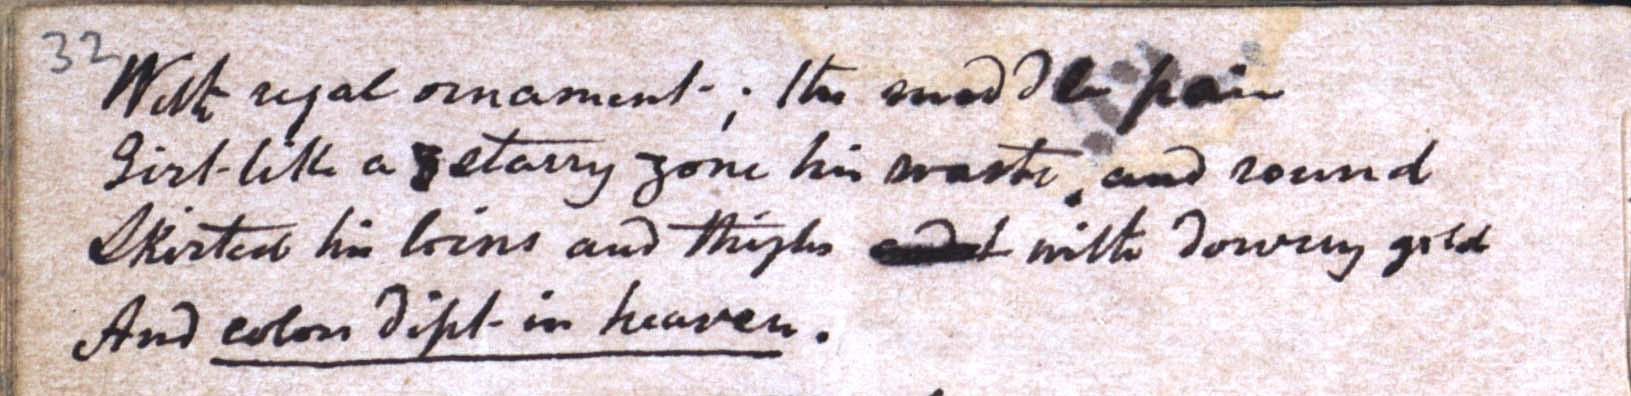 32
With regal ornament; the middle pair
Girt like a starry zone his waste, and round
Skirted his loins and thighs with downy gold
And colors dipt in heaven.